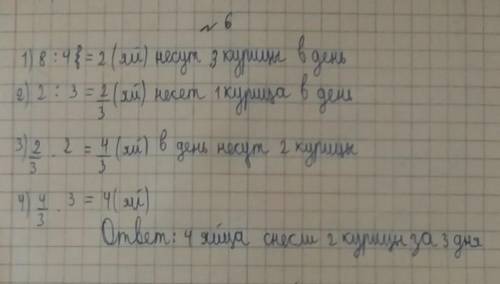 № 6
1) 8 : 4 = 2 (яй) несут 3 курицы в день
2) 2 : 3 = 2/3 (яй) несет 1 курица в день
3) 2/3 · 2 = 4/3 (яй) в день несут 2 курицы
4) 4/3 · 3 = 4 (яй)
Ответ: 4 яйца снесли 2 курицы за 3 дня